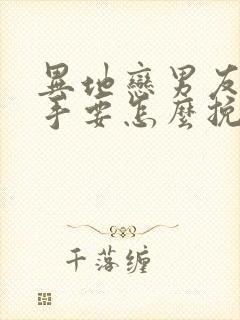 異地戀男友
手要怎麼挽
千落纏